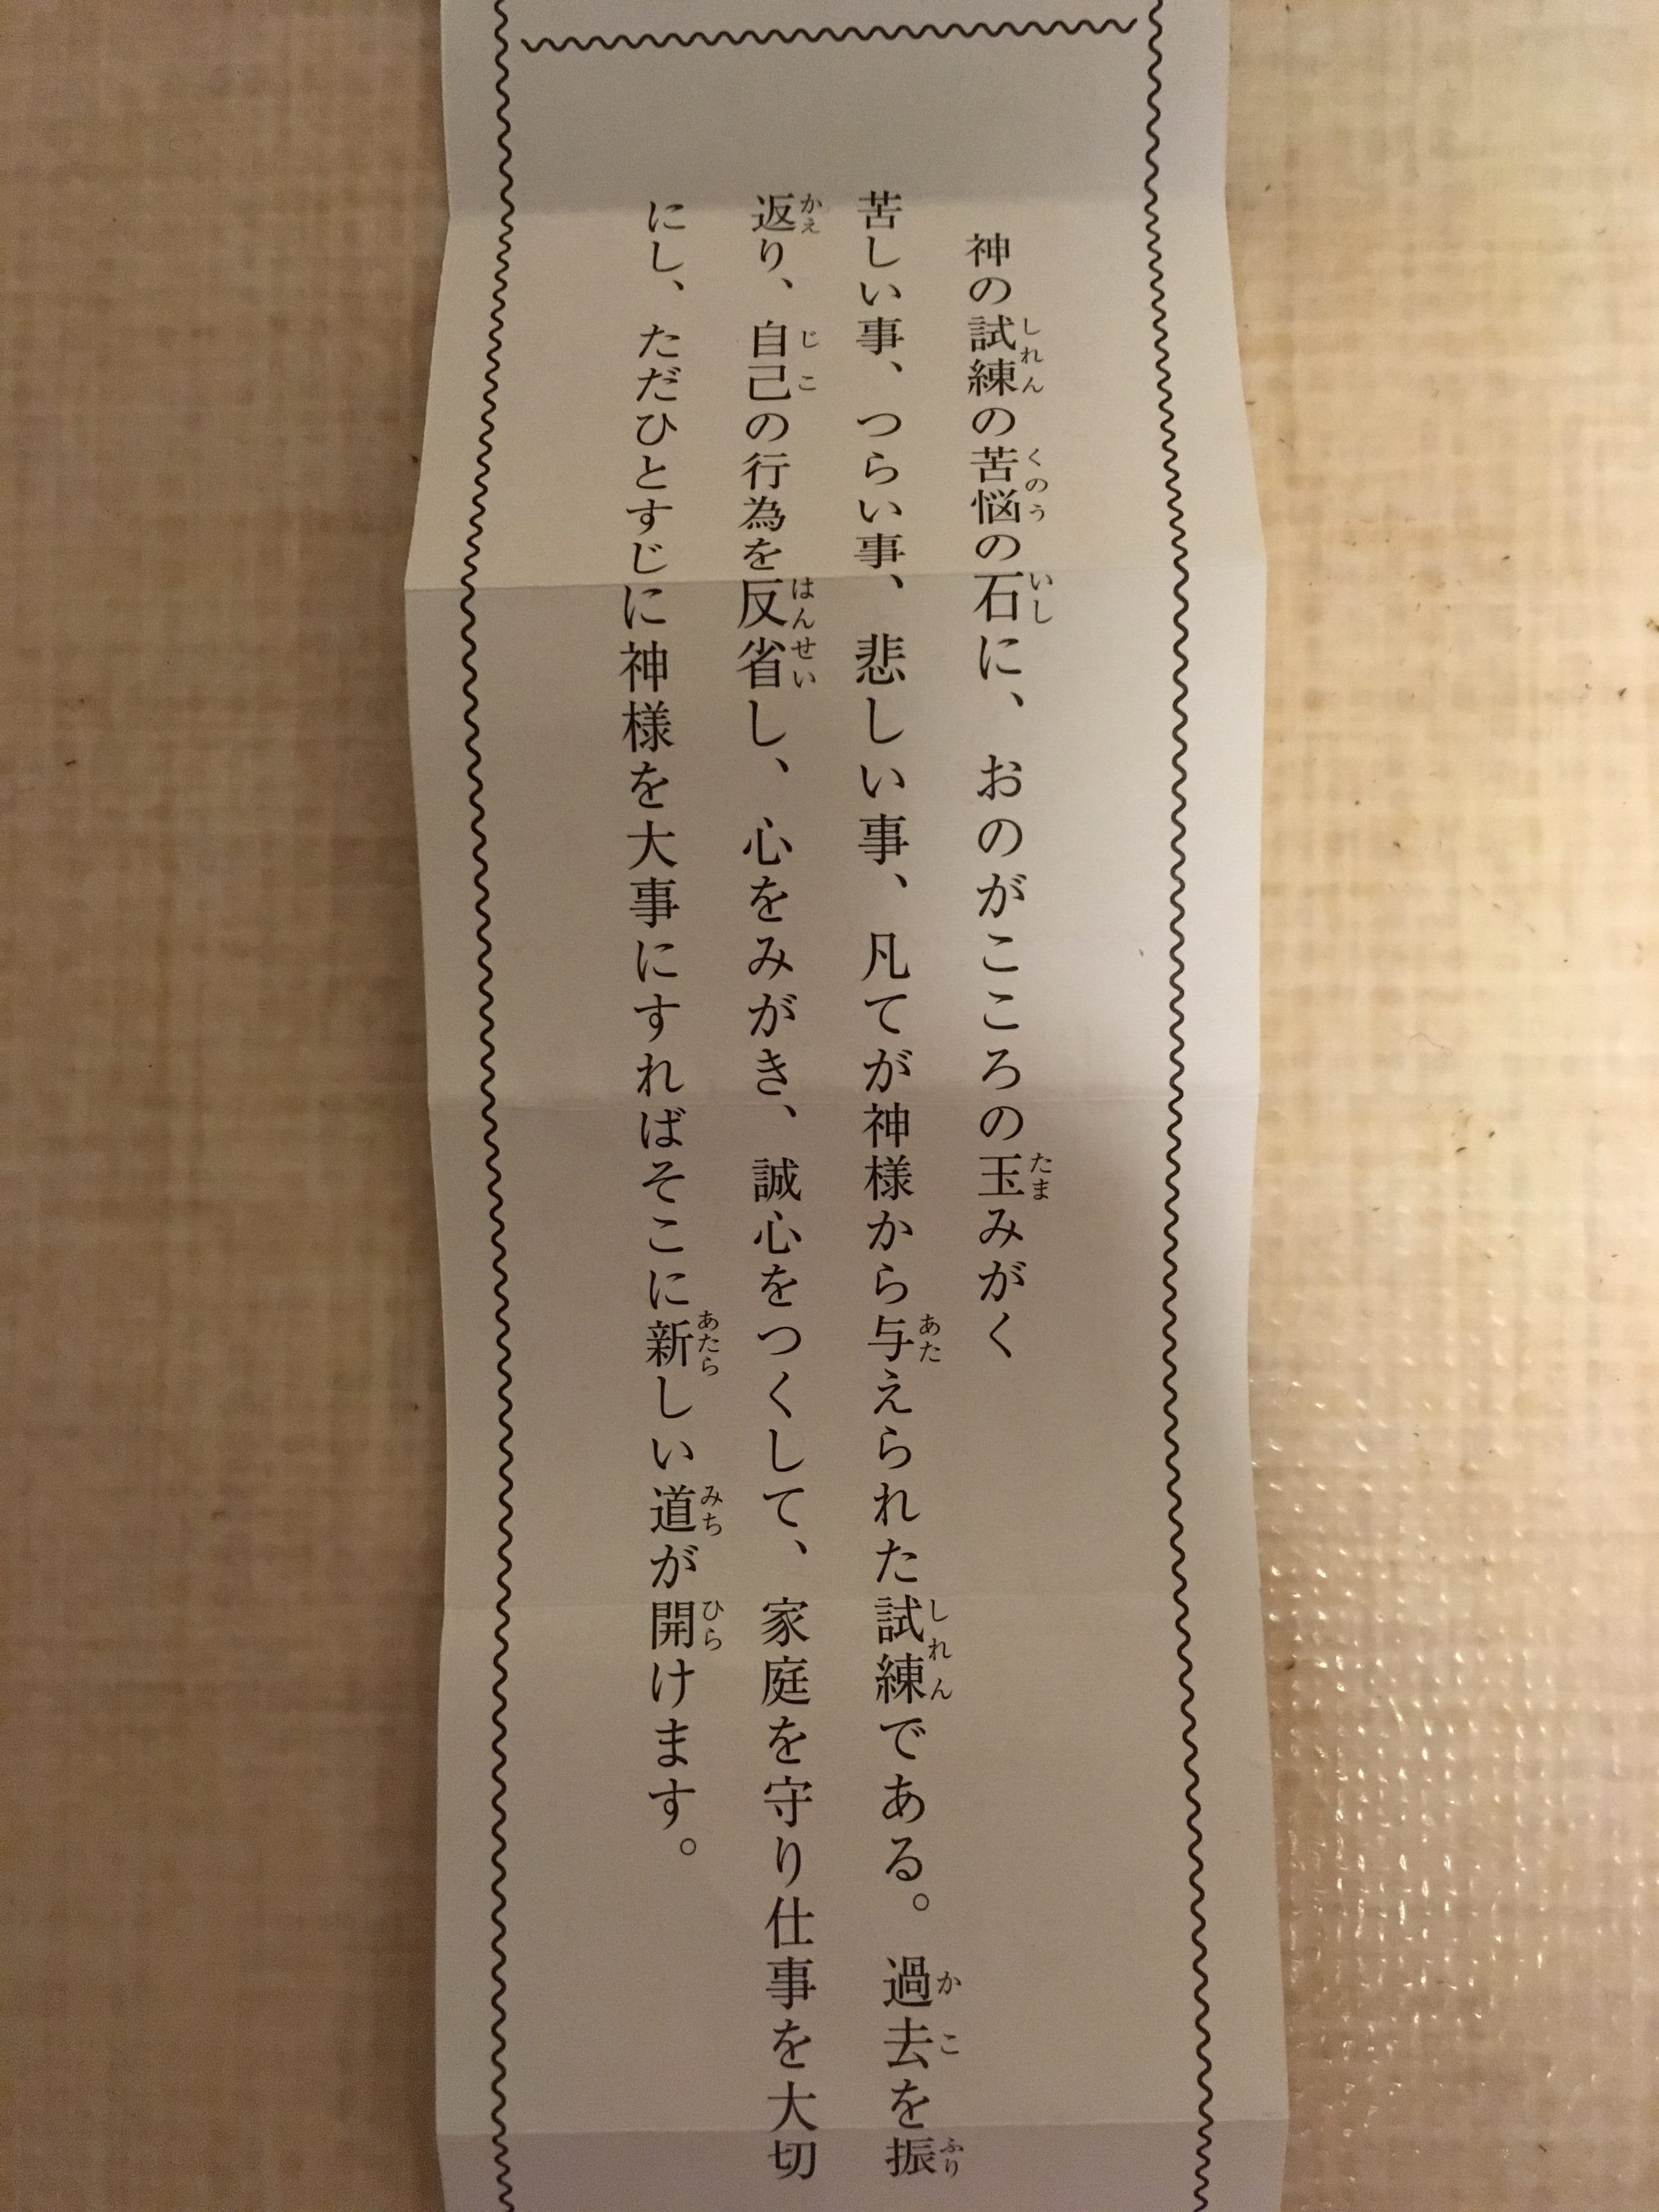 神の試練の苦悩の石に、おのがこころの玉みがく
苦しい事、つらい事、悲しい事、凡てが神様から与えられた試練である。過去を振
返り、自己の行為を反省し、心をみがき、誠心をつくして、家庭を守り仕事を大切
にし、ただひとすじに神様を大事にすればそこに新しい道が開けます。